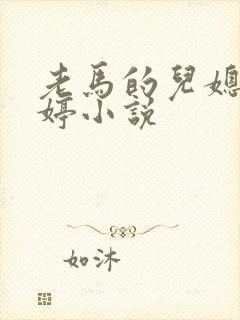 老馬的兒媳
婷小說
如沐